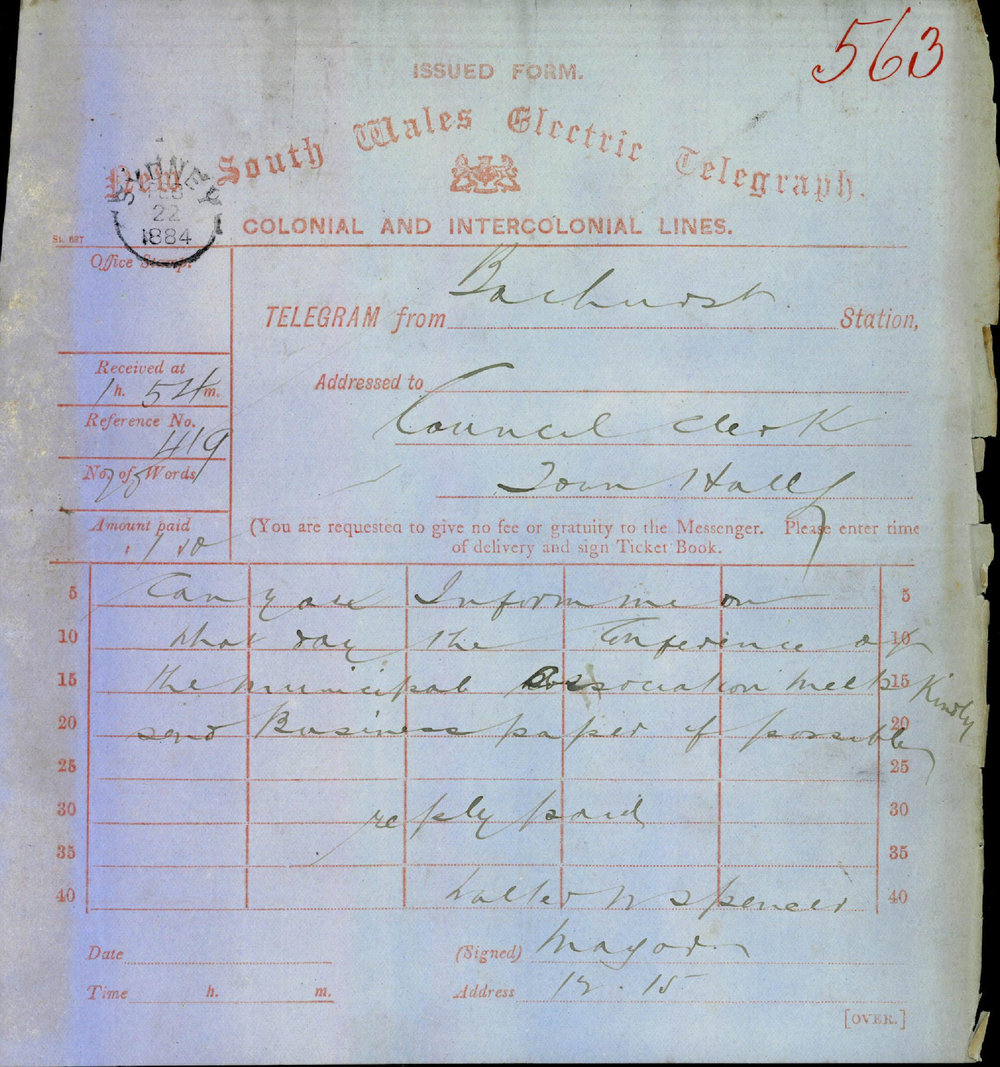 563
ISSUED FORM.
New South Wales Electric Telegraph.
SYDNEY
FEB
22
1884
COLONIAL AND INTERCOLONIAL LINES.
Office Stamp.
TELEGRAM from Bathurst Station,
Received at
1 h. 54 m.
Addressed to
Council Clerk
Reference No.
419
Town Hall
No. of Words
25
Amount paid
(You are requested to give no fee or gratuity to the Messenger. Please enter time
of delivery and sign Ticket Book.
5 Can you Inform me on 5
10 what day the Conference of 10
15 the Municipal Association meets Kindly 15
20 send Business paper if possible 20
25 25
30 reply paid 30
35 35
40 Walter W Spencer 40
Date (Signed) Mayor
Time h. m. Address 12.15
[OVER.]